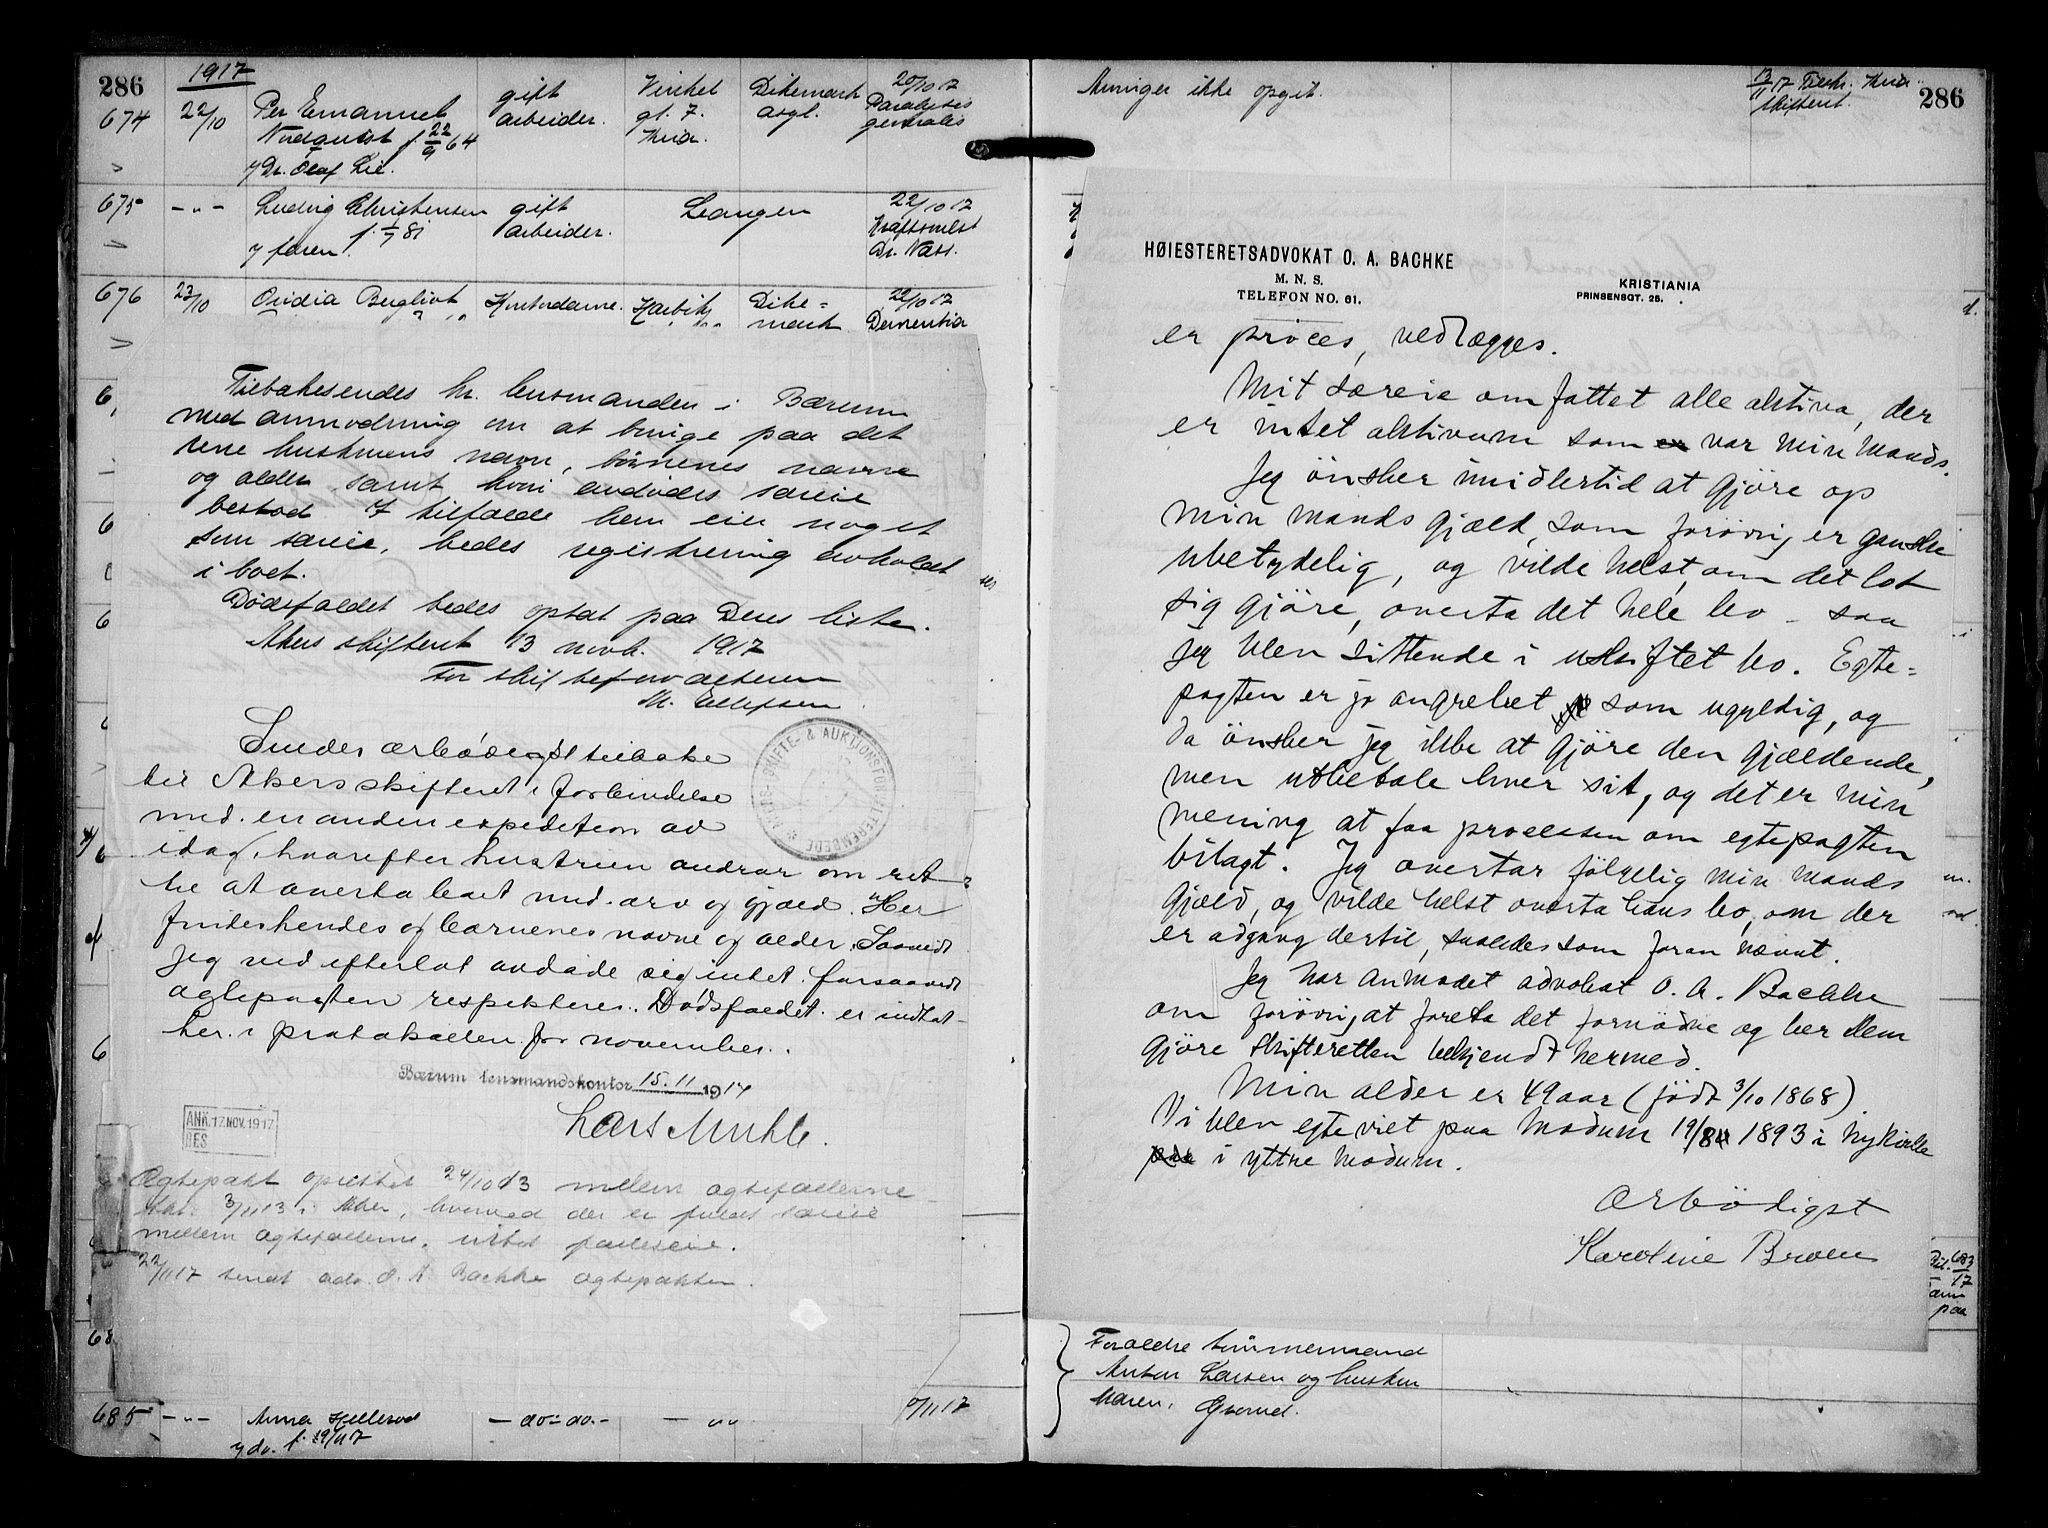 286
1917
674 22/10 Per Emanuel gift Vinkel Dikemark 20/10 17
Nordquist f. 22/9 64 arbeider. gt. 7. asyl. Paralysis
y Dr. Olaf Lie. Kria. generalis
675 -"- Ludvig Christensen gift Leangen 22/10 17
f. 1/7 81 arbeider. Kræftsvulst
y faren. Dr. Næss.
676 23/10 Ovidia Kunstnerinde Dike= 22/10 17
mark Dementia
Tilbakesendes hr. lensmanden i Bærum
med anmodning om at bringe paa det
rene hustruens navn, børnenes navne
og alder samt hvori avdødes særeie
bestod. I tilfælde han eier noget
som særeie, bedes registrering avholdt
i boet.
Dødsfaldet bedes optat paa Deres liste.
Akers skifteret 13 novb. 1917
For skifteforvalteren
M. Ellefsen
Sendes ærbødigst tilbake
til Akers skifteret i forbindelse
med en anden expedition av
idag, hvorefter hustruen andrar om ret=
til at overta boet med arv og gjæld. Her
findes hendes og barnenes navne og alder. Saavidt
jeg ved efterlot avdøde sig intet forsaavidt
ægtepagten respekteres. Dødsfaldet er indtat
her i protokollen for november.
SKIFTE- & AUKTIONSFORVALTEREMBEDE
Bærum lensmandskontor 15.11 1917
Lars Muhle.
ANK. 17. NOV. 1917
BES
Ægtepakt oprettet 24/10 13 mellem ægtefællerne
3/11 13 i Aker, hvorved der er fuldt særeie
mellem ægtefællerne, intet fælleseie.
22/11 17 sendt adv. O. A. Bachke ægtepakten.
685 -"- Anna Hillerod -do-do.- - " - /11 17
y do. f. 19/4 17
Arvinger ikke opgit. 13/11 17 Kria
skifteret. 286
HØIESTERETSADVOKAT O. A. BACHKE
M. N. S.
TELEFON NO. 61.
KRISTIANIA
PRINSENSGT. 25.
er proces, vedlægges.
Mit særeie omfattet alle aktiva, der
er intet aktivum som er var min mands.
Jeg ønsker imidlertid at gjöre op
min mands gjæld, som forövrig er ganske
ubetydelig, og vilde helst, om det lot
sig gjöre, overta det hele bo – saa
jeg blev sittende i uskiftet bo. Egte=
pagten er jo angrebet som ugyldig, og
da önsker jeg ikke at gjöre den gjældende,
men utbetale hver sit, og det er min
mening at faa processen om egtepagten
bilagt. Jeg overtar fölgelig min mands
gjæld, og vilde helst overta hans bo, om der
er adgang dertil, saaledes som foran nævnt.
Jeg har anmodet advokat O. A. Bachke
om forövrig at foreta det fornödne og ber dem
gjöre skifteretten bekjendt hermed.
Min alder er 49 aar (födt 3/10 1868)
Vi blev egteviet paa Modum 19/8 1893 i Nykirke
paa i ytre Modum.
Ærbödigst
Karoline Broen
683
17
paa
Forældre tömmermand
Anton Larsen og hustru
Maren,